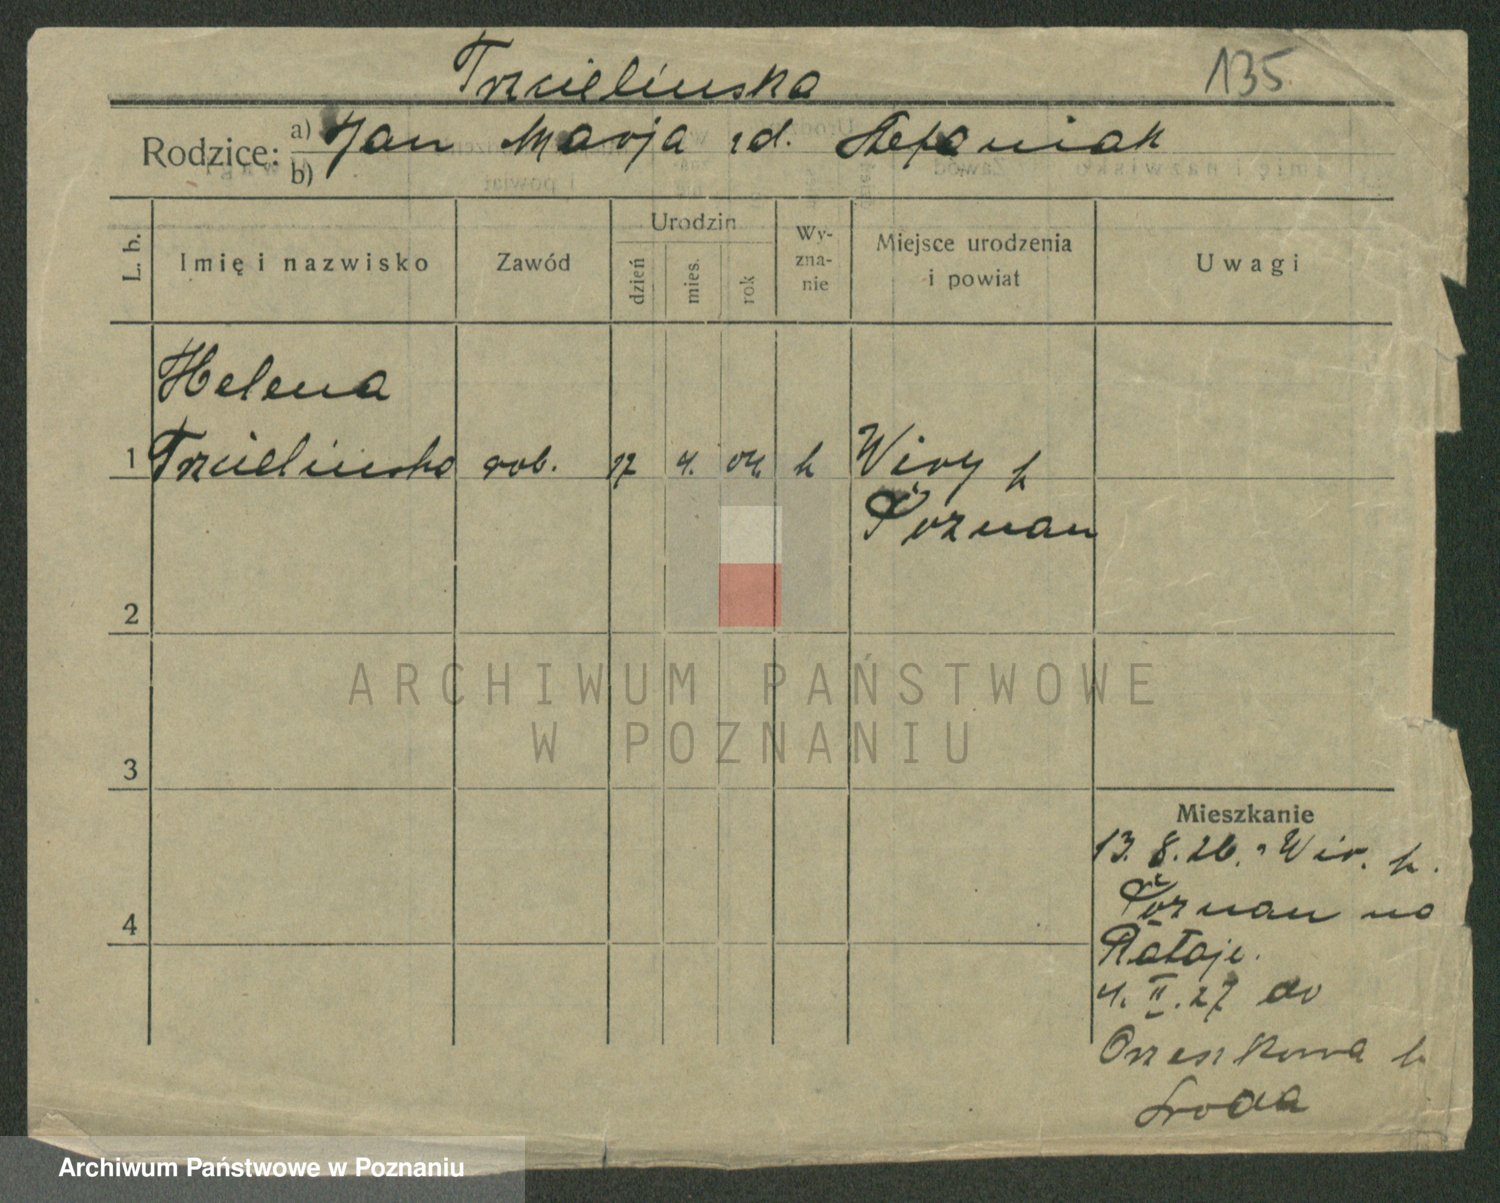 Trzcielinska
135
Rodzice: a) Jan Marja zd. Stefaniak
b)
L. b.
Imię i nazwisko
Zawód
Urodzin
dzień
mies.
rok
Wy-
zna-
nie
Miejsce urodzenia
i powiat
Uwagi
Helena
1 Trzcielinska rob. 17 4. 04. k Wiry p
Poznań
2
3
4
Mieszkanie
13. 8. 26. Wir. p.
Poznań na
Rataje.
4. II. 27 do
Orzeszkowa p
Środa
ARCHIWUM PAŃSTWOWE
W POZNANIU
Archiwum Państwowe w Poznaniu